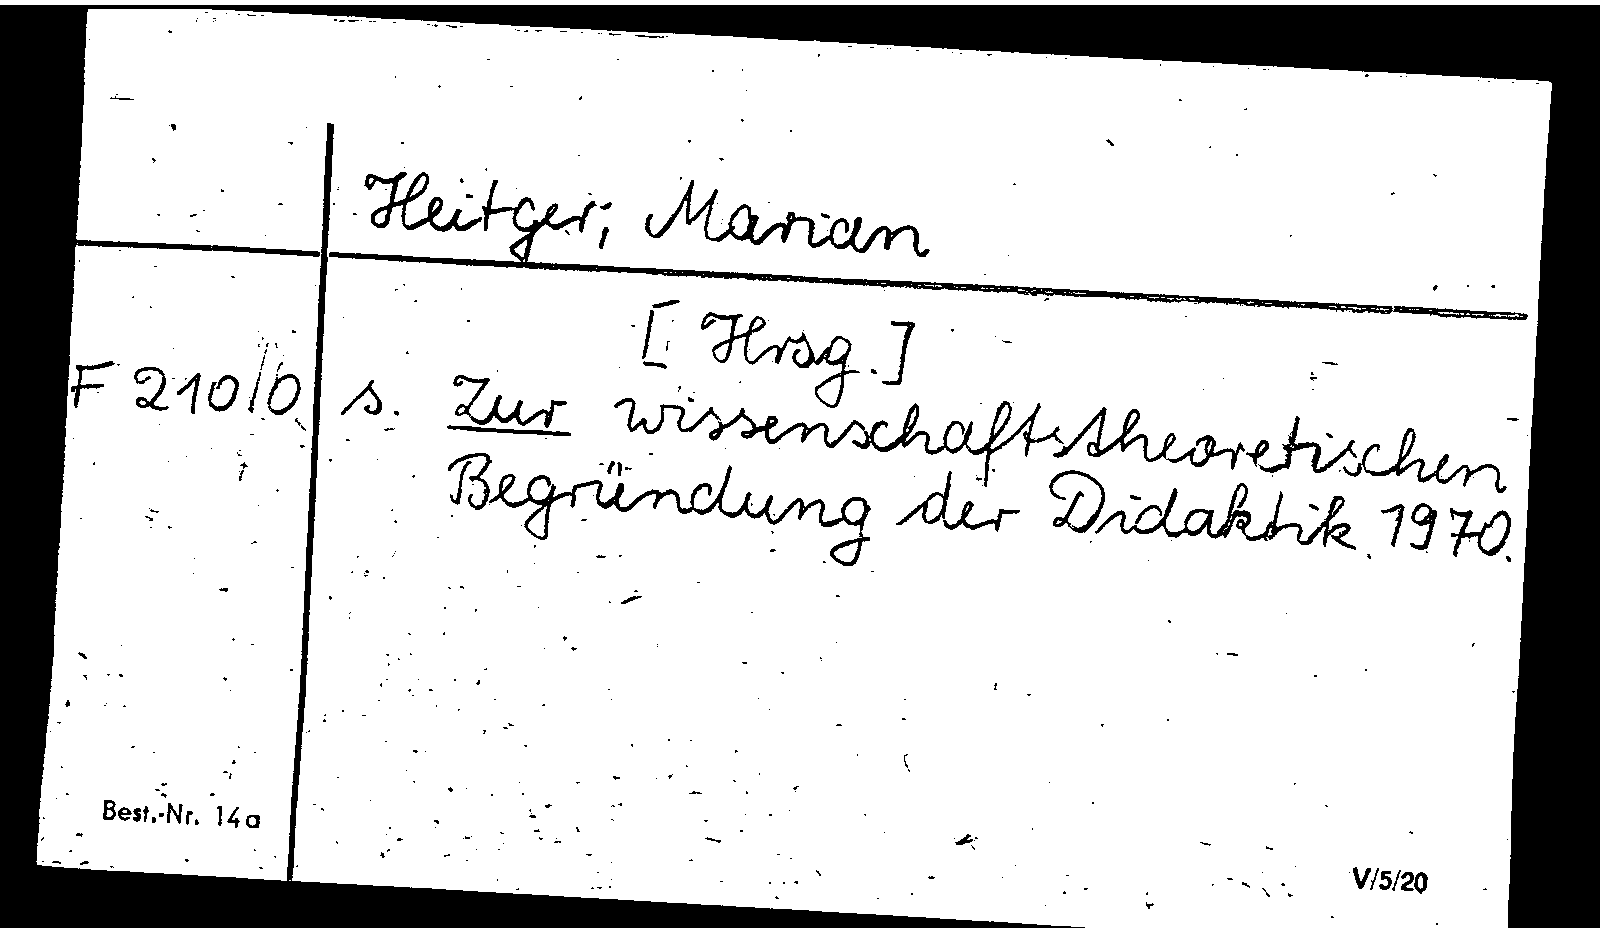 Heitger, Marian
[Hrsg.]
F 210/0 s. Zur wissenschaftstheoretischen
Begründung der Didaktik. 1970.
Best.-Nr. 14a
V/5/20